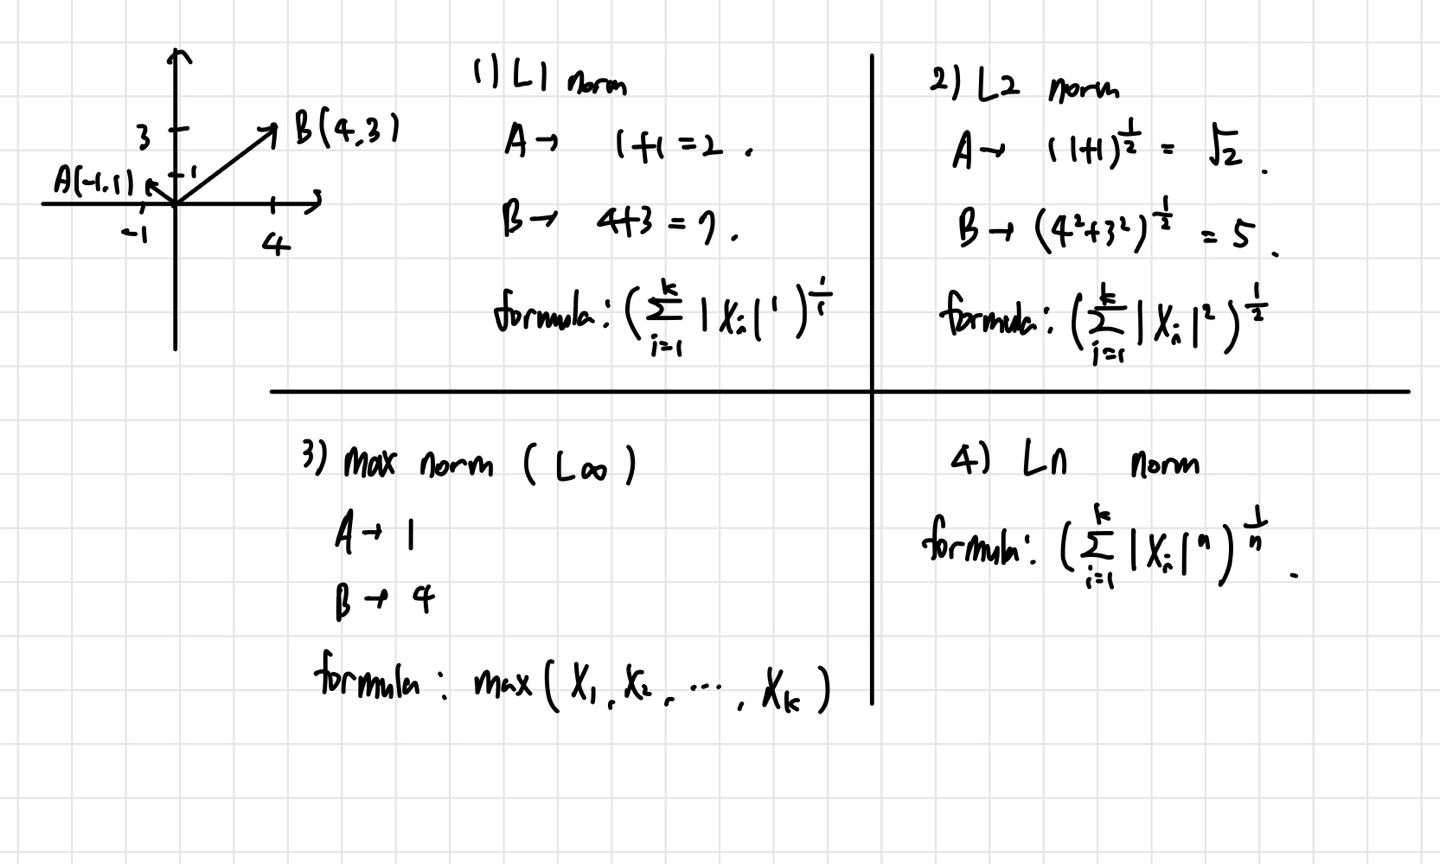 3
B(4,3)
A(-1,1)
1
-1
4
1) L1 norm
A → 1+1 = 2 .
B → 4+3 = 7 .
formula : (∑_{i=1}^{k} |X_i|^1)^{1/1}
2) L2 norm
A → (1+1)^{1/2} = √2 .
B → (4²+3²)^{1/2} = 5 .
formula : (∑_{i=1}^{k} |X_i|^2)^{1/2}
3) max norm (L∞)
A → 1
B → 4
formula : max(X_1, X_2, ⋯, X_k)
4) Ln norm
formula : (∑_{i=1}^{k} |X_i|^n)^{1/n} .